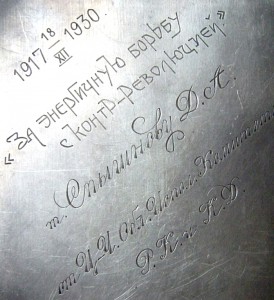 1917 18/XII 1930.
"ЗА ЭНЕРГИЧНУЮ БОРЬБУ
С КОНТР-РЕВОЛЮЦИЕЙ"
т. Спышнову Д. А.
от Ц.И. Обл. Исполн. Комитета
Р. К. и К. Д.